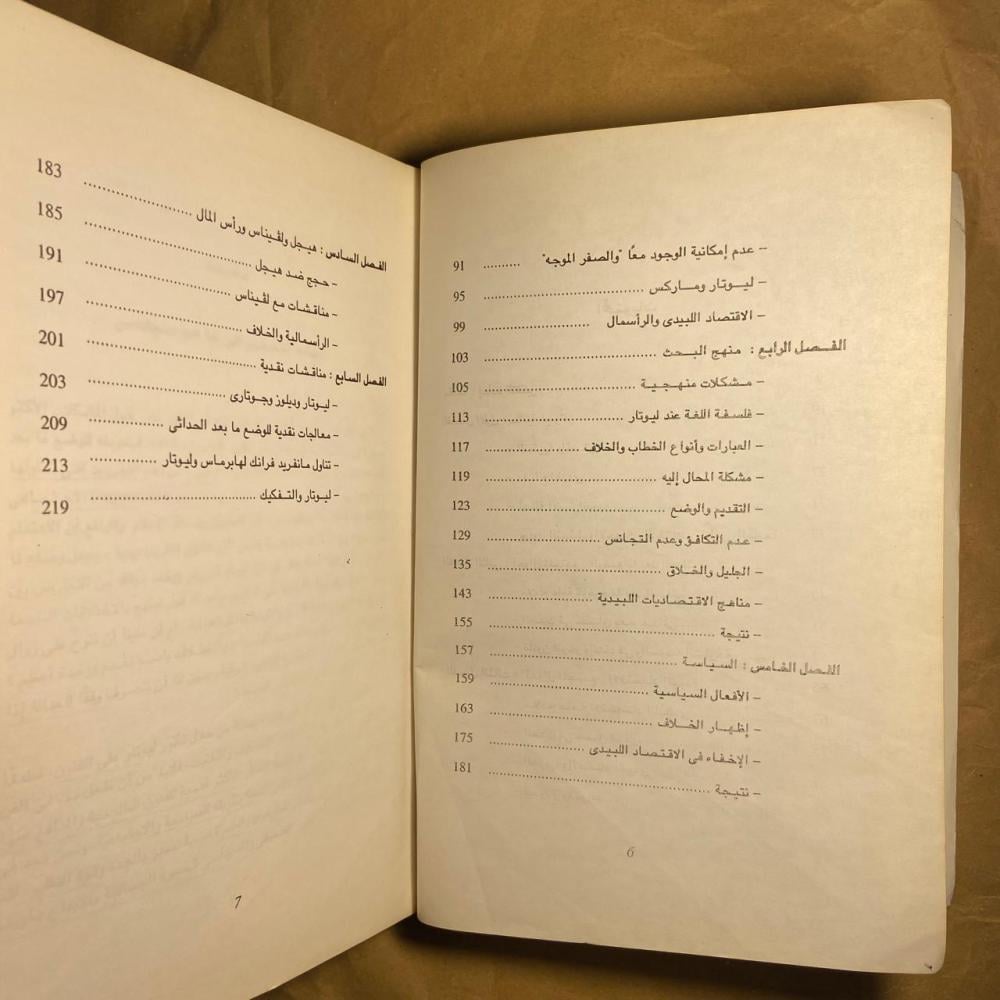 - عدم إمكانية الوجود معًا "والصفر الموجه" .......... 91
- ليوتار وماركس .......... 95
- الاقتصاد اللبيدى والرأسمال .......... 99
الفصل الرابع : منهج البحث .......... 103
- مشكلات منهجية .......... 105
- فلسفة اللغة عند ليوتار .......... 113
- العبارات وأنواع الخطاب والخلاف .......... 117
- مشكلة المحال إليه .......... 119
- التقديم والوضع .......... 123
- عدم التكافؤ وعدم التجانس .......... 129
- الجليل والخلاق .......... 135
- مناهج الاقتصاديات اللبيدية .......... 143
- نتيجة .......... 155
الفصل الخامس : السياسة .......... 157
- الأفعال السياسية .......... 159
- إظهار الخلاف .......... 163
- الإخفاء فى الاقتصاد اللبيدى .......... 175
- نتيجة .......... 181
6
الفصل السادس : هيجل ولڤيناس ورأس المال .......... 183
- حجج ضد هيجل .......... 185
- مناقشات مع لڤيناس .......... 191
- الرأسمالية والخلاف .......... 197
الفصل السابع : مناقشات نقدية .......... 201
- ليوتار وديلوز وجوتارى .......... 203
- معالجات نقدية للوضع ما بعد الحداثى .......... 209
- تناول مانفريد فرانك لهابرماس وليوتار .......... 213
- ليوتار والتفكيك .......... 219
7